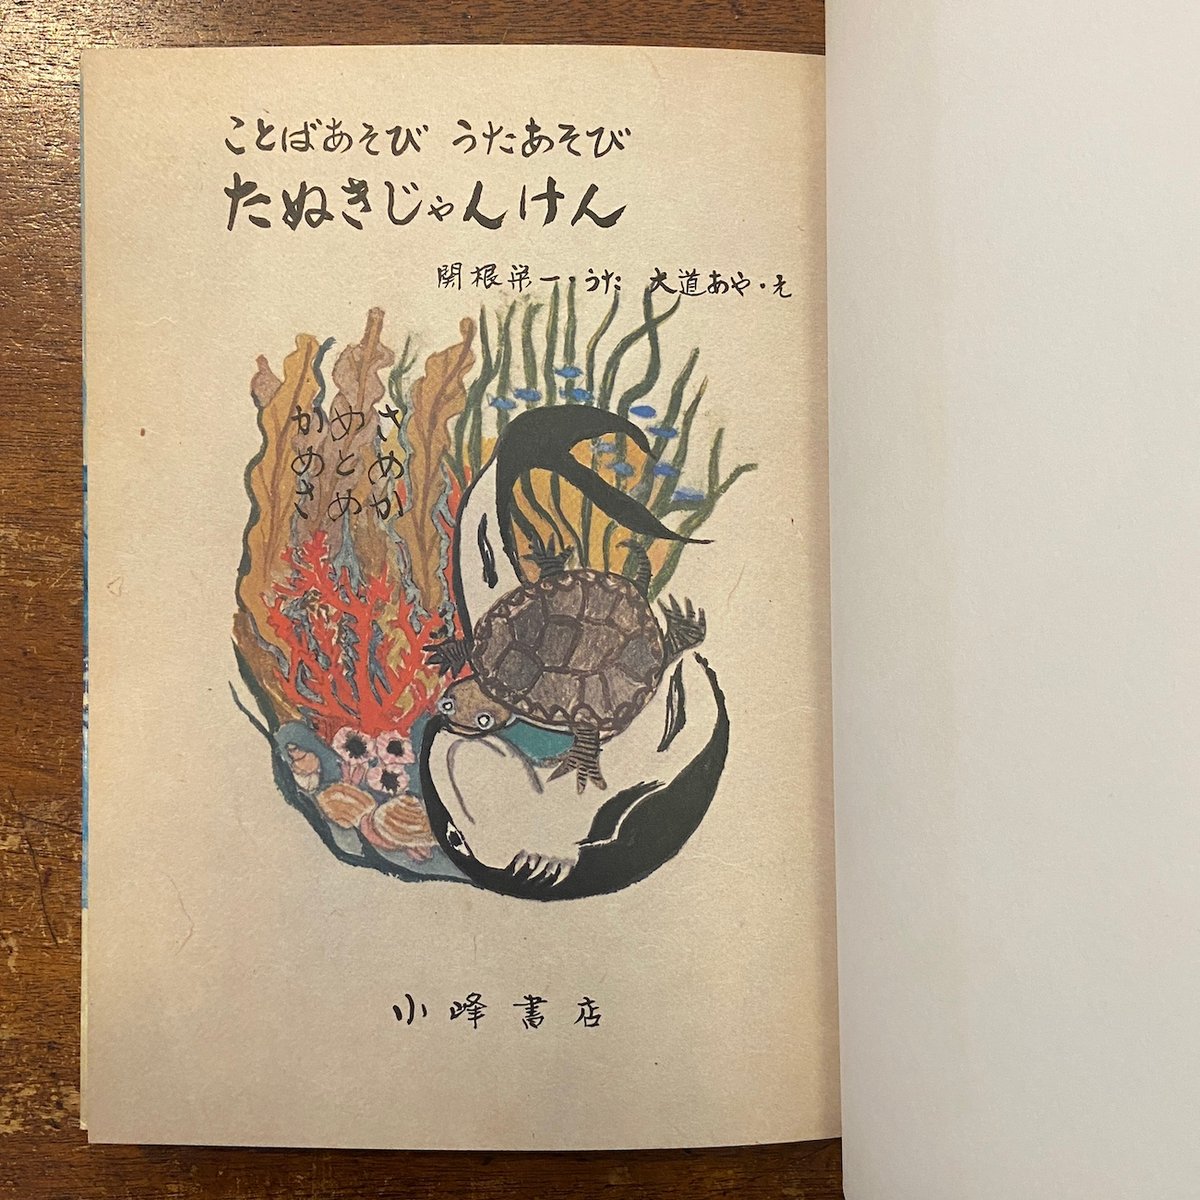 ことばあそび うたあそび
たぬきじゃんけん
関根栄一・うた 大道あや・え
さめか
めとめ
かめさ
小峰書店